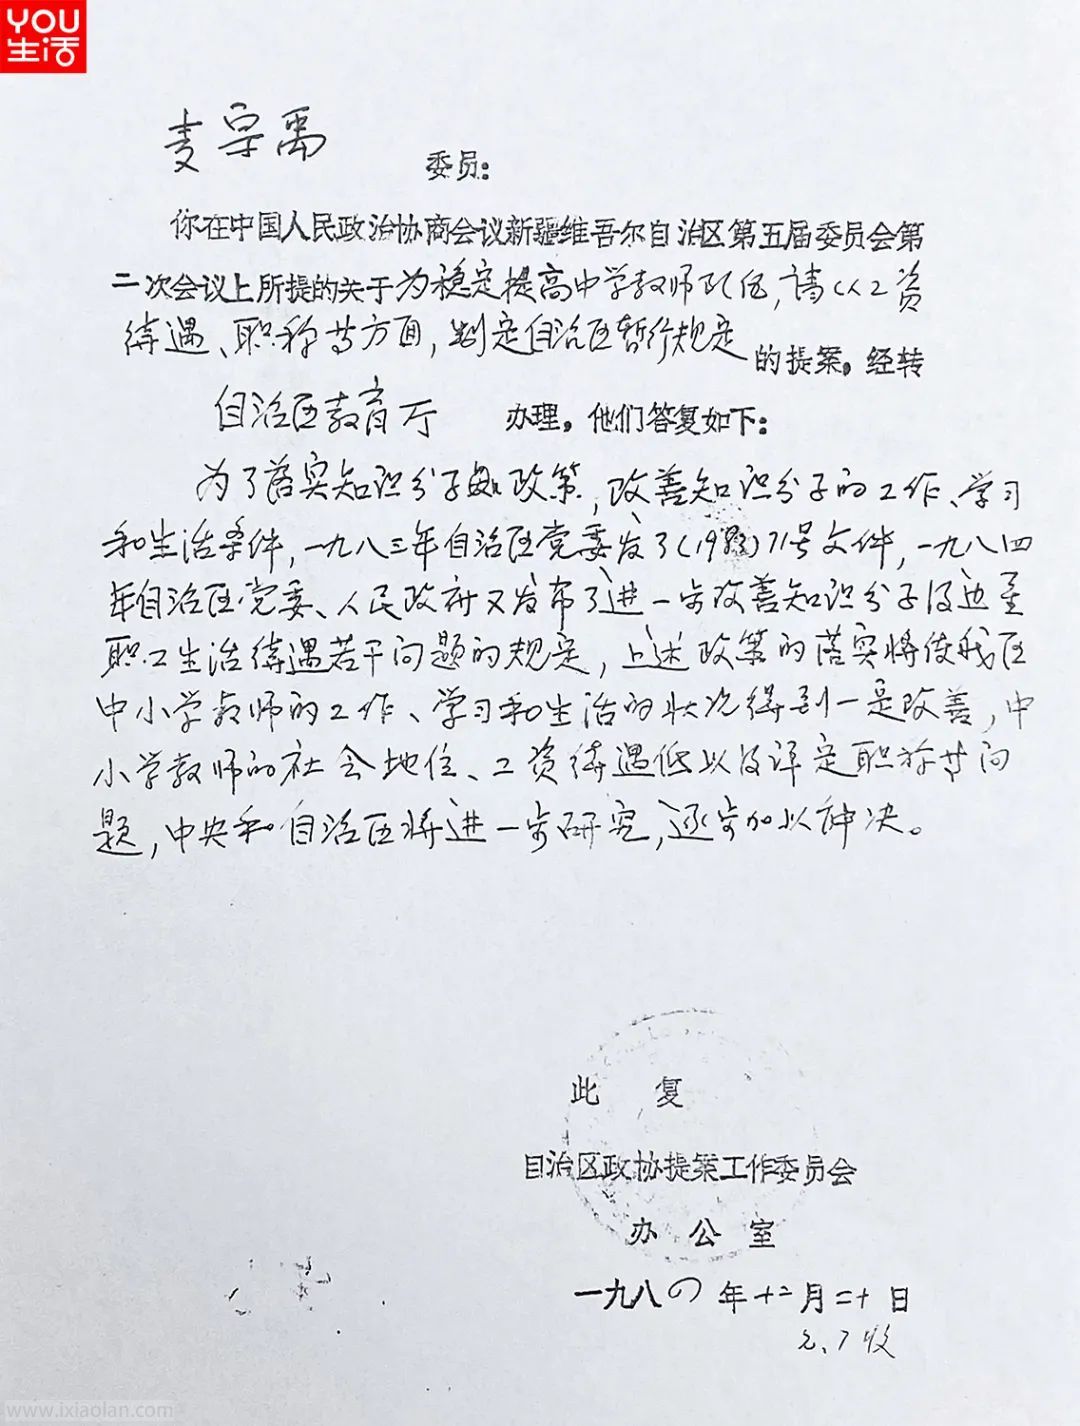 YOU
生活
麦宗禹 委员：
你在中国人民政治协商会议新疆维吾尔自治区第五届委员会第
二次会议上所提的关于为稳定提高中学教师队伍，请从工资
待遇、职称等方面，制定自治区暂行规定 的提案，经转
自治区教育厅 办理，他们答复如下：
为了落实知识分子 政策，改善知识分子的工作、学习
和生活条件，一九八三年自治区党委发了(1983)71号文件，一九八四
年自治区党委、人民政府又发布了进一步改善知识分子及边
职工生活待遇若干问题的规定，上述政策的落实将使我区
中小学教师的工作、学习和生活的状况得到一定改善，中
小学教师的社会地位、工资待遇低以及评定职称等问
题，中央和自治区将进一步研究，逐步加以解决。
此 复
自治区政协提案工作委员会
办 公 室
一九八四年十二月二十日
2、7收
www.ixiaolan.com